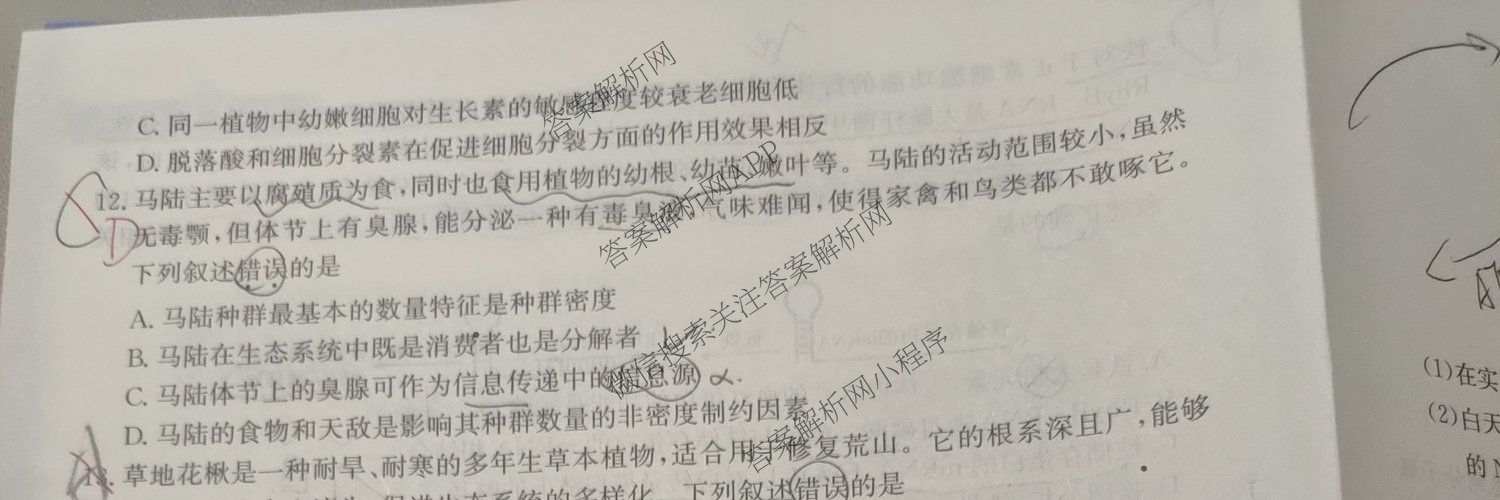 C. 同一植物中幼嫩细胞对生长素的敏感程度较衰老细胞低
D. 脱落酸和细胞分裂素在促进细胞分裂方面的作用效果相反
12. 马陆主要以腐殖质为食,同时也食用植物的幼根、幼苗、嫩叶等。马陆的活动范围较小,虽然
无毒颚,但体节上有臭腺,能分泌一种有毒臭液,气味难闻,使得家禽和鸟类都不敢啄它。
下列叙述错误的是
A. 马陆种群最基本的数量特征是种群密度
B. 马陆在生态系统中既是消费者也是分解者
C. 马陆体节上的臭腺可作为信息传递中的信息源
D. 马陆的食物和天敌是影响其种群数量的非密度制约因素
13. 草地花楸是一种耐旱、耐寒的多年生草本植物,适合用于修复荒山。它的根系深且广,能够
促进生态系统的多样化。下列叙述错误的是
D
答案解析网
答案解析网APP
微信搜索关注答案解析网
答案解析网小程序
(1)在实
(2)白天
的